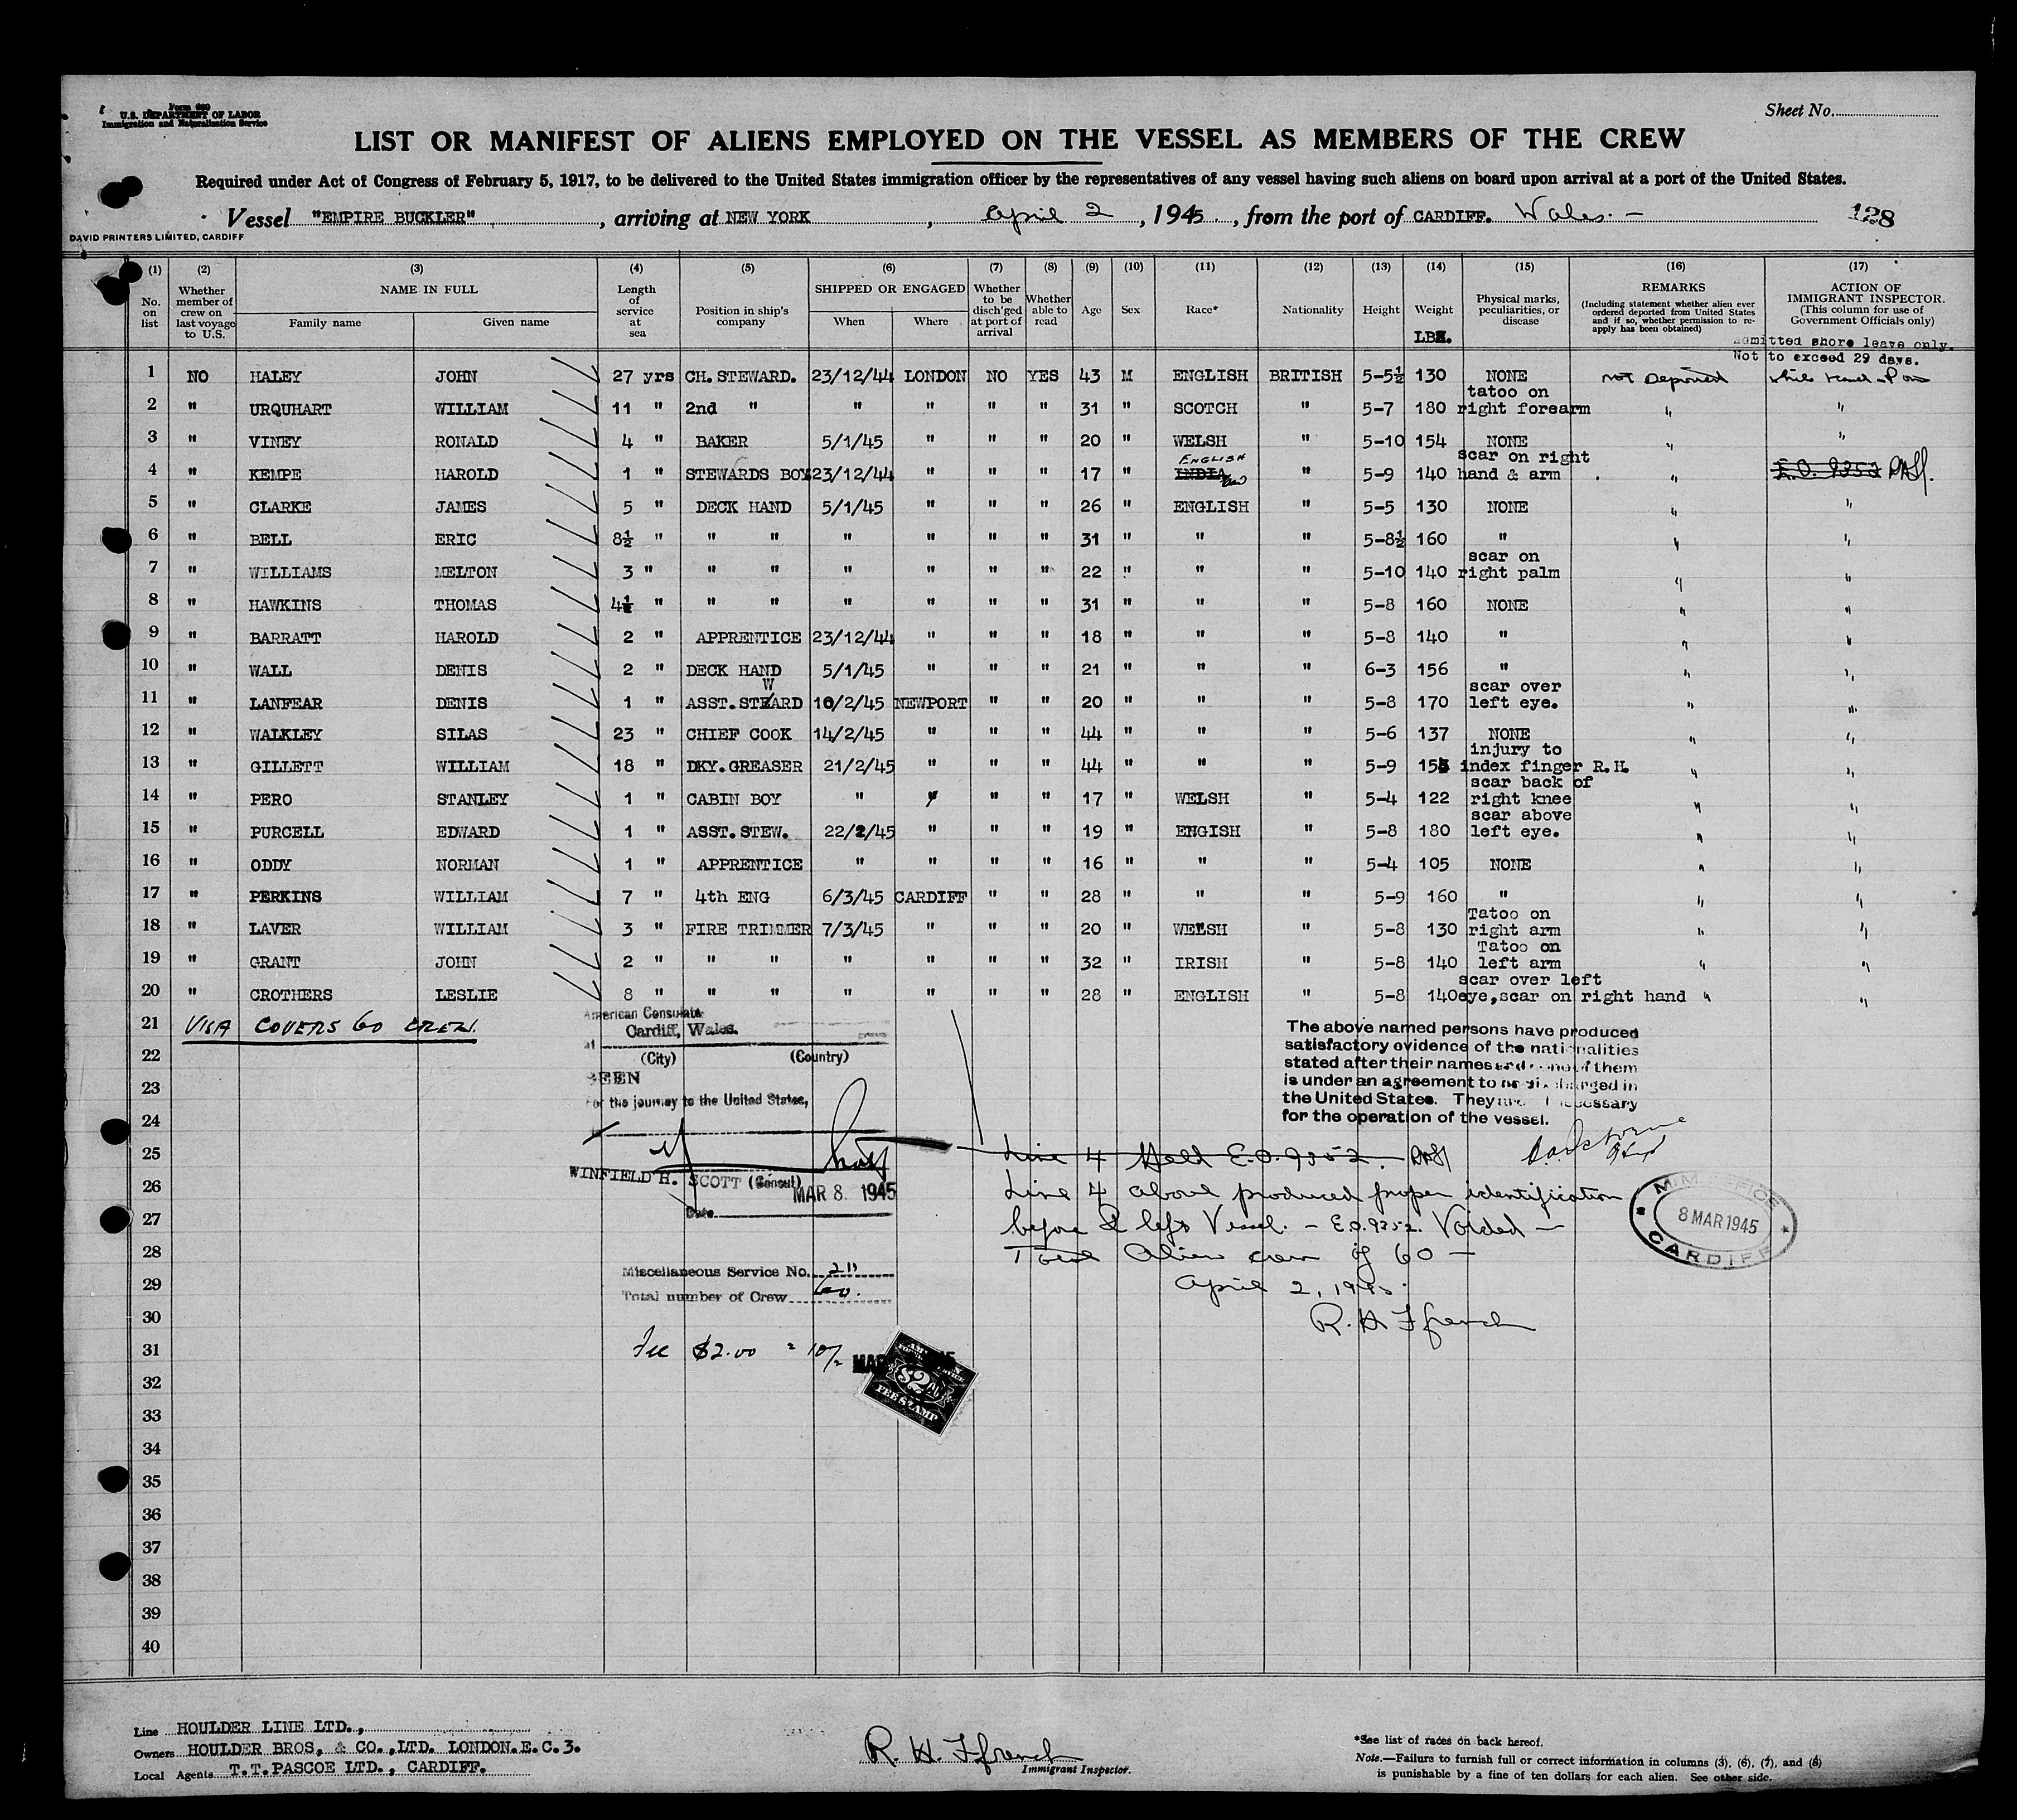 Form 680
U.S. DEPARTMENT OF LABOR
Immigration and Naturalization Service
Sheet No.
LIST OR MANIFEST OF ALIENS EMPLOYED ON THE VESSEL AS MEMBERS OF THE CREW
Required under Act of Congress of February 5, 1917, to be delivered to the United States immigration officer by the representatives of any vessel having such aliens on board upon arrival at a port of the United States.
Vessel "EMPIRE BUCKLER", arriving at NEW YORK, April 2, 1945, from the port of CARDIFF. Wales. — 128
DAVID PRINTERS LIMITED, CARDIFF
(1) (2) (3) (4) (5) (6) (7) (8) (9) (10) (11) (12) (13) (14) (15) (16) (17)
No. on list | Whether member of crew on last voyage to U.S. | NAME IN FULL Family name Given name | Length of service at sea | Position in ship's company | SHIPPED OR ENGAGED When Where | Whether to be disch'ged at port of arrival | Whether able to read | Age | Sex | Race* | Nationality | Height | Weight LBS. | Physical marks, peculiarities, or disease | REMARKS (Including statement whether alien ever ordered deported from United States and if so, whether permission to re-apply has been obtained) | ACTION OF IMMIGRANT INSPECTOR. (This column for use of Government Officials only)
Admitted shore leave only.
Not to exceed 29 days.
1 NO HALEY JOHN 27 yrs CH. STEWARD. 23/12/44 LONDON NO YES 43 M ENGLISH BRITISH 5-5½ 130 NONE not Deported while
2 " URQUHART WILLIAM 11 " 2nd " " " " " 31 " SCOTCH " 5-7 180 tatoo on right forearm " "
3 " VINEY RONALD 4 " BAKER 5/1/45 " " " 20 " WELSH " 5-10 154 NONE " "
4 " KEMPE HAROLD 1 " STEWARDS BOY 23/12/44 " " " 17 " INDIA ENGLISH " 5-9 140 scar on right hand & arm " E.O. 9352
5 " CLARKE JAMES 5 " DECK HAND 5/1/45 " " " 26 " ENGLISH " 5-5 130 NONE " "
6 " BELL ERIC 8½ " " " " " " " 31 " " " 5-8½ 160 " " "
7 " WILLIAMS MELTON 3 " " " " " " " 22 " " " 5-10 140 scar on right palm " "
8 " HAWKINS THOMAS 4½ " " " " " " " 31 " " " 5-8 160 NONE " "
9 " BARRATT HAROLD 2 " APPRENTICE 23/12/44 " " " 18 " " " 5-8 140 " " "
10 " WALL DENIS 2 " DECK HAND 5/1/45 " " " 21 " " " 6-3 156 " " "
11 " LANFEAR DENIS 1 " ASST. STEWARD 10/2/45 NEWPORT " " 20 " " " 5-8 170 scar over left eye. " "
12 " WALKLEY SILAS 23 " CHIEF COOK 14/2/45 " " " 44 " " " 5-6 137 NONE " "
13 " GILLETT WILLIAM 18 " DKY. GREASER 21/2/45 " " " 44 " " " 5-9 injury to index finger R.H. " "
14 " PERO STANLEY 1 " CABIN BOY " " " " 17 " WELSH " 5-4 122 scar back of right knee " "
15 " PURCELL EDWARD 1 " ASST. STEW. 22/2/45 " " " 19 " ENGISH " 5-8 180 scar above left eye. " "
16 " ODDY NORMAN 1 " APPRENTICE " " " " 16 " " " 5-4 105 NONE " "
17 " PERKINS WILLIAM 7 " 4th ENG 6/3/45 CARDIFF " " 28 " " " 5-9 160 " " "
18 " LAVER WILLIAM 3 " FIRE TRIMMER 7/3/45 " " " 20 " WELSH " 5-8 130 Tatoo on right arm " "
19 " GRANT JOHN 2 " " " " " " " 32 " IRISH " 5-8 140 Tatoo on left arm " "
20 " CROTHERS LESLIE 8 " " " " " " " 28 " ENGLISH " 5-8 140 scar over left eye, scar on right hand " "
21 VISA COVERS 60 CREW.
22
23
24
25
26
27
28
29
30
31
32
33
34
35
36
37
38
39
40
American Consulate
at Cardiff, Wales.
(City) (Country)
SEEN
For the journey to the United States,
WINFIELD H. SCOTT (Consul)
MAR 8 1945
Date
Miscellaneous Service No. 211
Total number of Crew 60.
Fee $2.00 = 10/-
MAR
$2
FEE STAMP
The above named persons have produced
satisfactory evidence of the nationalities
stated after their names and none of them
is under an agreement to be discharged in
the United States. They are necessary
for the operation of the vessel.
Line 4 Held E.O. 9352.
Line 4 above produced proper identification
before I left Vessel. — E.O. 9352. Voided —
Total Alien crew of 60 —
April 2, 1945.
R. H. Ffrench
M.M. OFFICE
8 MAR 1945
CARDIFF
Line HOULDER LINE LTD.,
Owners HOULDER BROS, & CO., LTD. LONDON. E.C.3.
Local Agents T.T. PASCOE LTD., CARDIFF.
R. H. Ffrench
Immigrant Inspector.
*See list of races on back hereof.
Note.—Failure to furnish full or correct information in columns (3), (6), (7), and (8)
is punishable by a fine of ten dollars for each alien. See other side.